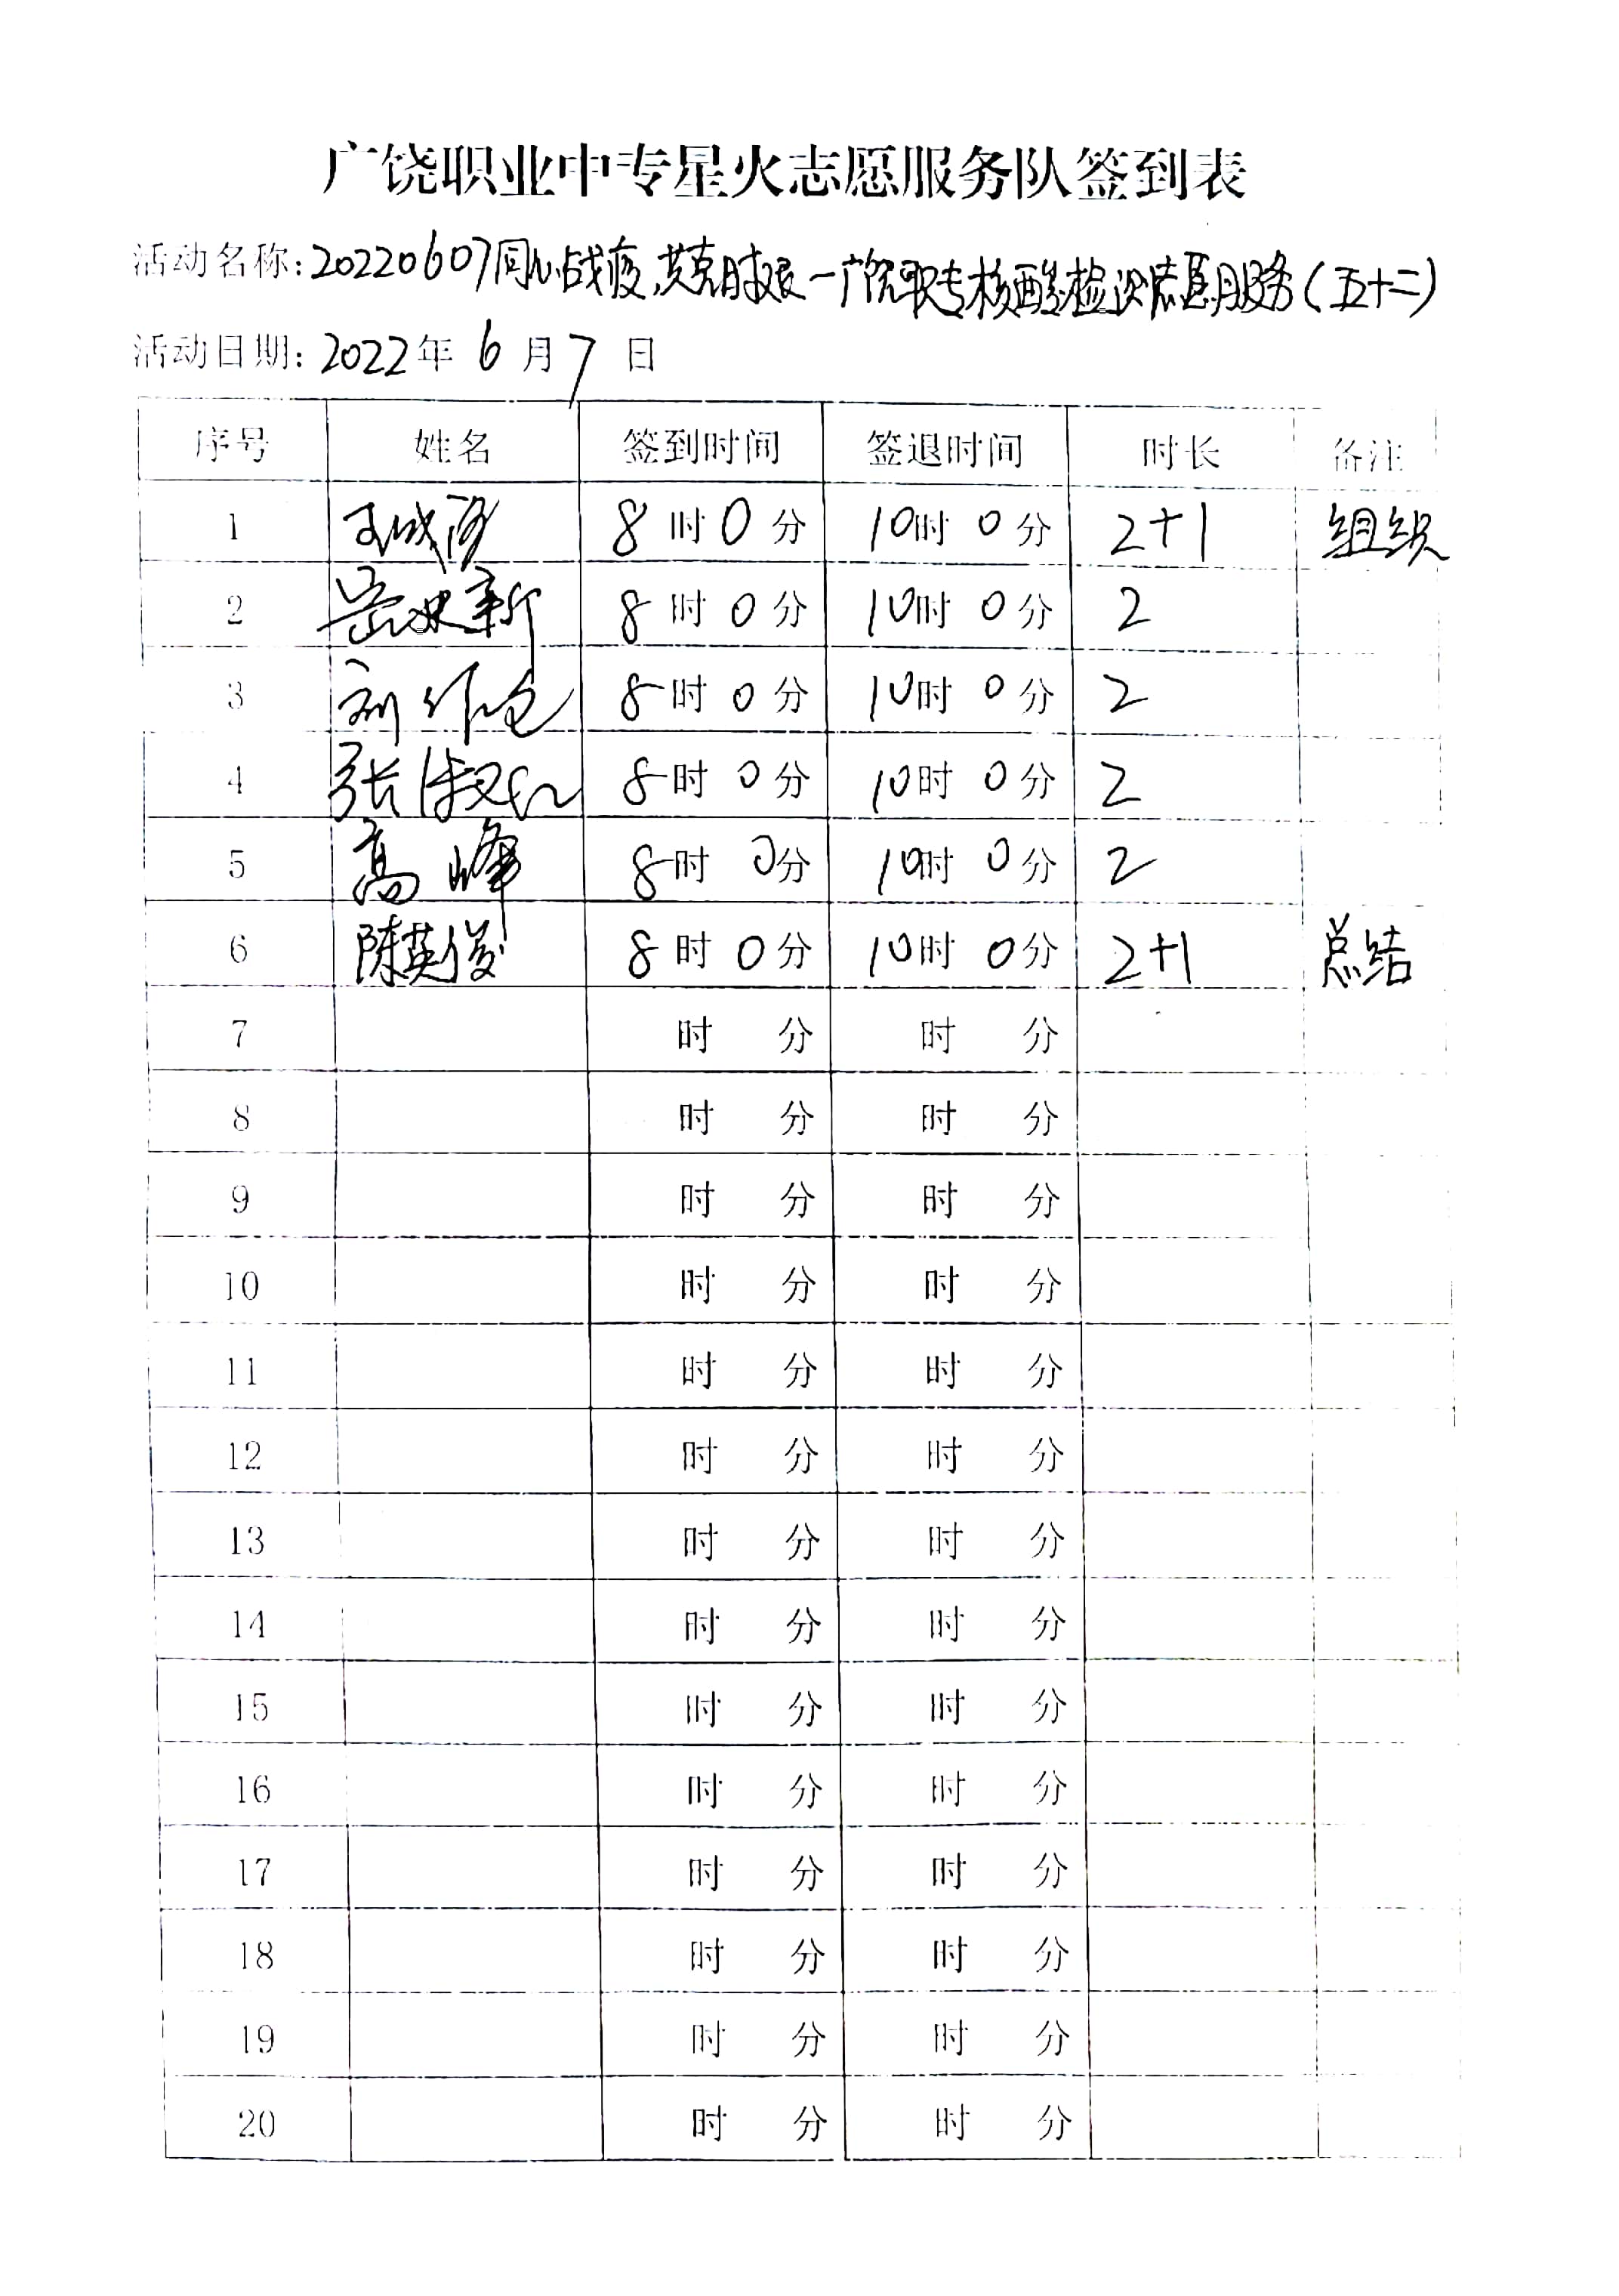 广饶职业中专星火志愿服务队签到表
活动名称:20220607同心战疫,共克时艰—广饶职专核酸检测志愿服务(五十二)
活动日期:2022年 6 月 7 日
序号 姓名 签到时间 签退时间 时长 备注
1 8 时 0 分 10时 0 分 2+1 组织
2 8 时 0 分 10时 0 分 2
3 刘 8 时 0 分 10时 0 分 2
4 张淑 8 时 0 分 10时 0 分 2
5 高峰 8 时 0 分 10时 0 分 2
6 陈英俊 8 时 0 分 10时 0 分 2+1 总结
7 时 分 时 分
8 时 分 时 分
9 时 分 时 分
10 时 分 时 分
11 时 分 时 分
12 时 分 时 分
13 时 分 时 分
14 时 分 时 分
15 时 分 时 分
16 时 分 时 分
17 时 分 时 分
18 时 分 时 分
19 时 分 时 分
20 时 分 时 分